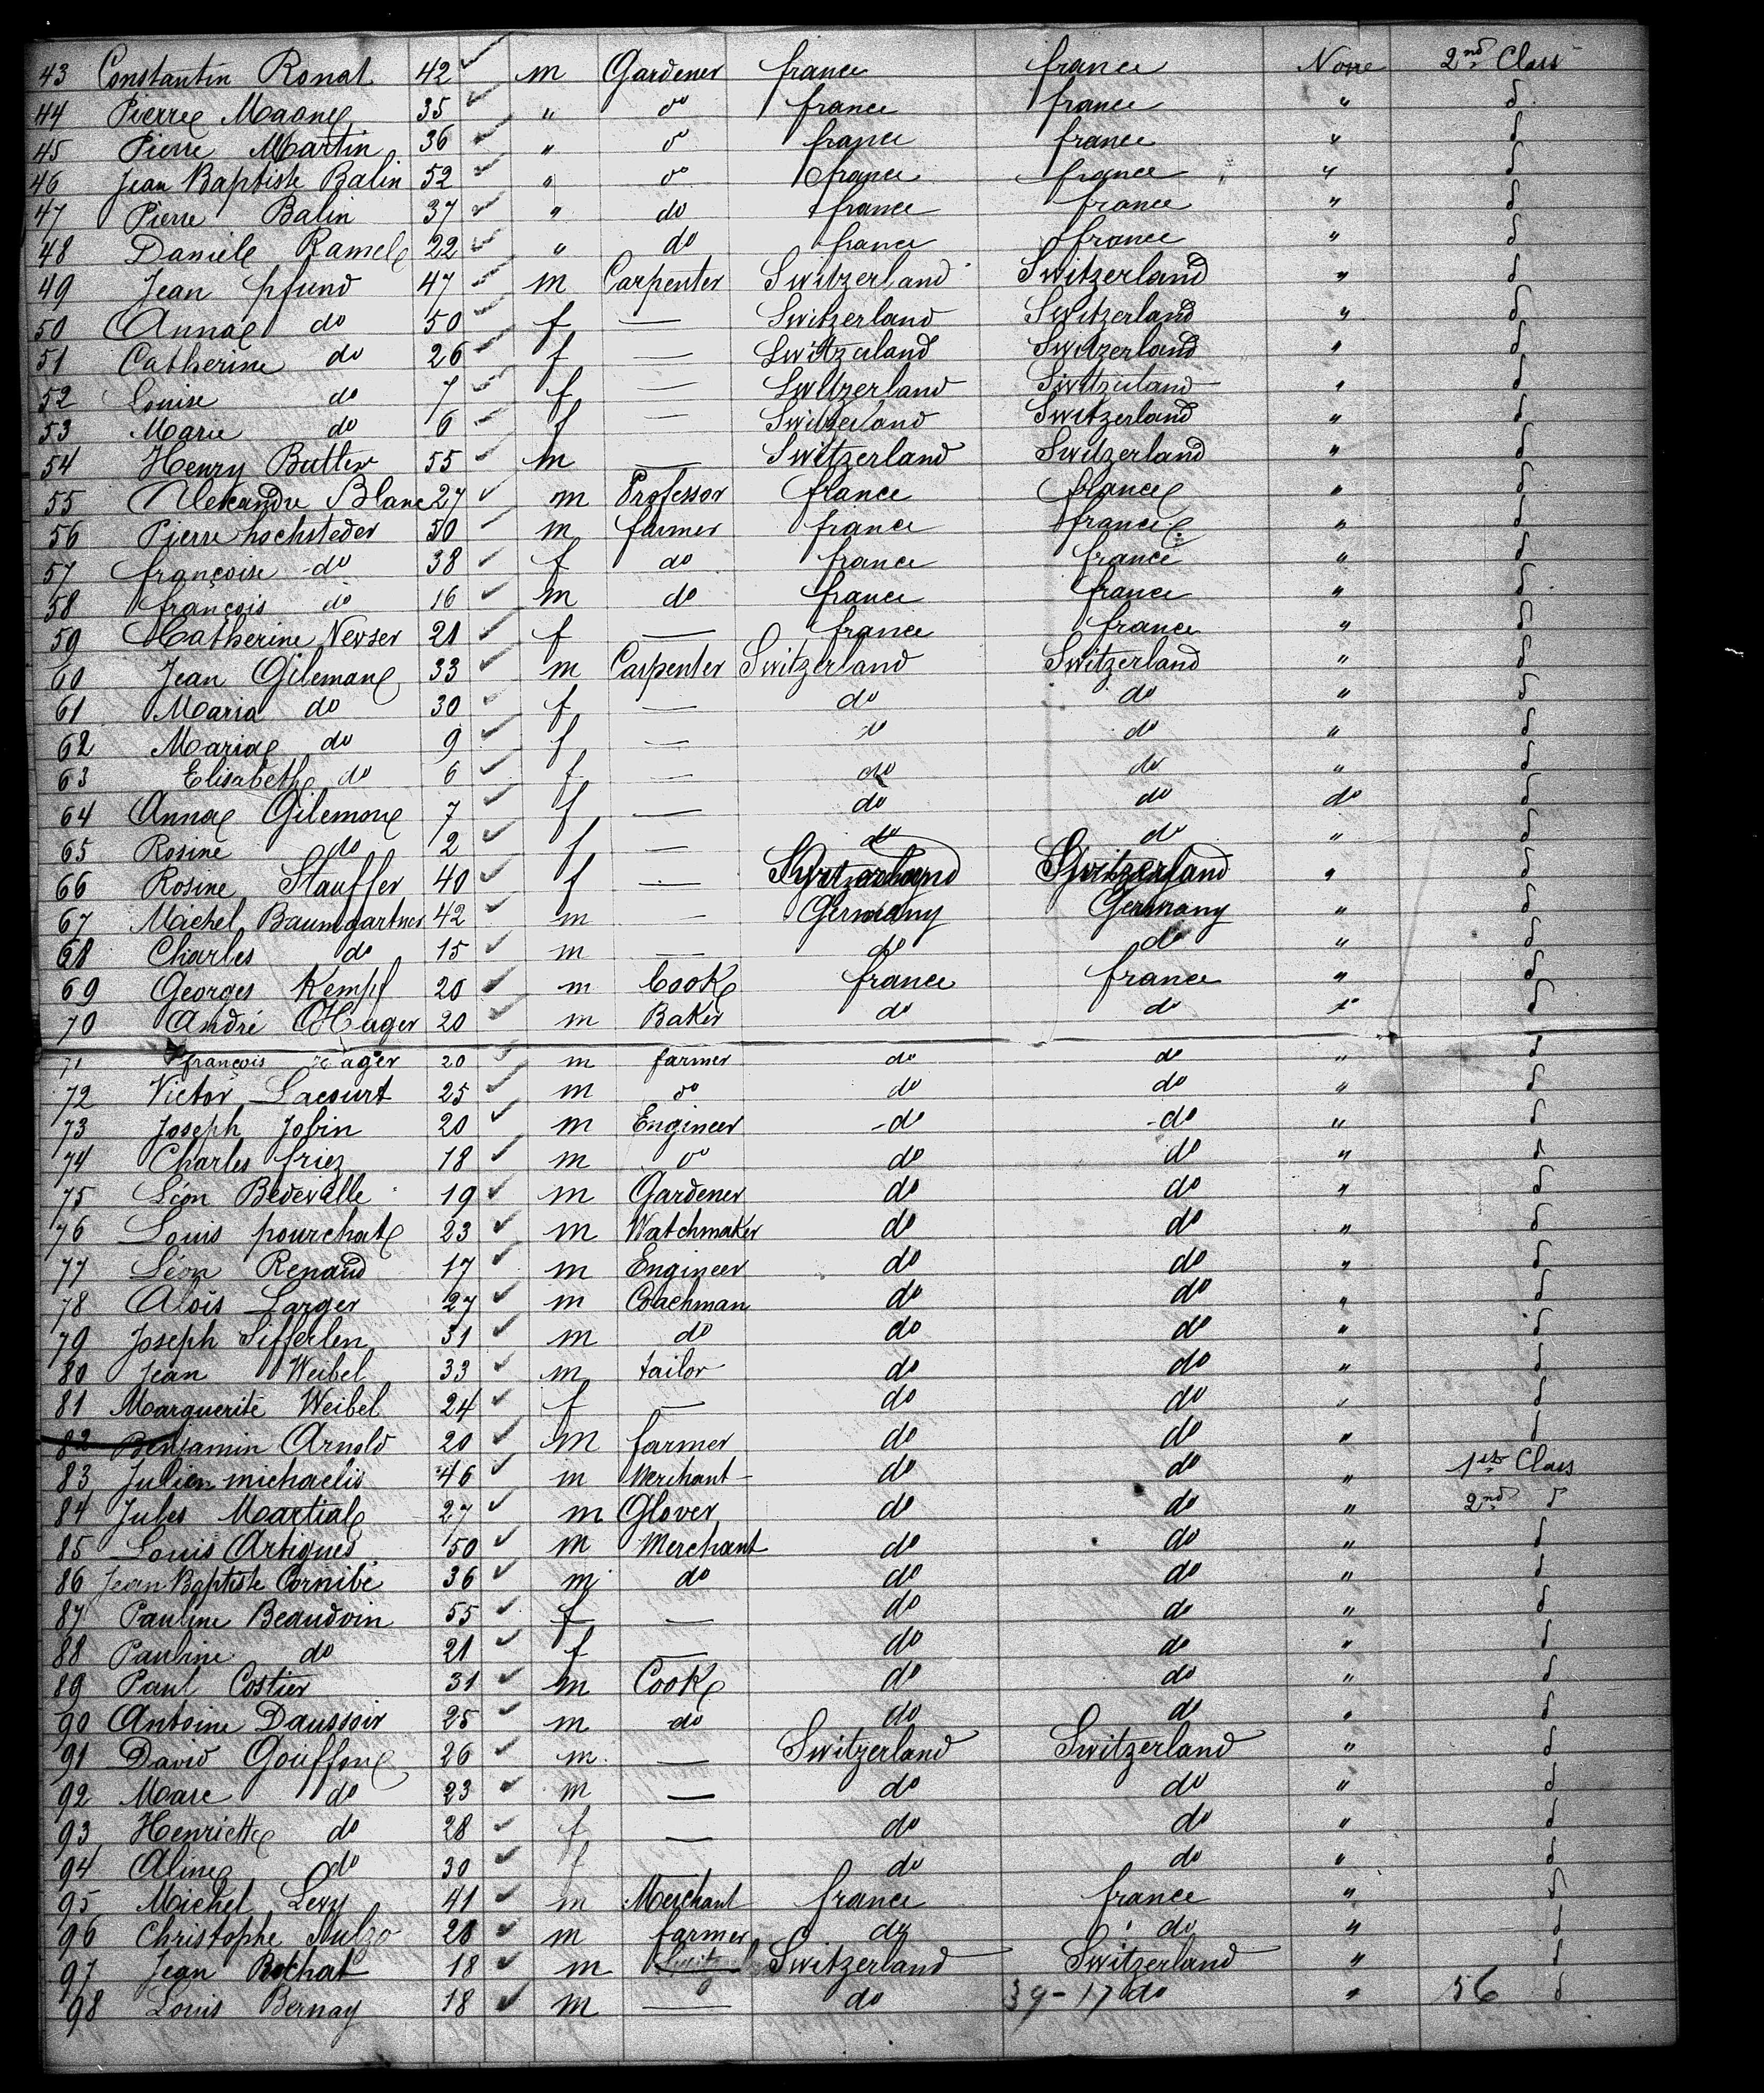 43 Constantin Ronat 42 m Gardener france france None 2nd Class
44 Pierre Magne 35 " do france france " d
45 Pierre Martin 36 " do france france " d
46 Jean Baptiste Balin 52 " do france france " d
47 Pierre Balin 37 " do france france " d
48 Daniele Ramel 22 " do france france " d
49 Jean pfund 47 m Carpenter Switzerland Switzerland " d
50 Anna do 50 f — Switzerland Switzerland " d
51 Catherine do 26 f — Switzerland Switzerland " d
52 Louise do 7 f — Switzerland Switzerland " d
53 Marie do 6 f — Switzerland Switzerland " d
54 Henry Butter 55 m — Switzerland Switzerland " d
55 Alexandre Blanc 27 m Professor france france " d
56 Pierre hochsteder 50 m farmer france france " d
57 françoise do 38 f do france france " d
58 françois do 16 m do france france " d
59 Catherine Nevser 21 f — france france " d
60 Jean Gileman 33 m Carpenter Switzerland Switzerland " d
61 Maria do 30 f — do do " d
62 Maria do 9 f — do do " d
63 Elisabeth do 6 f — do do " d
64 Anna Gilemon 7 f — do do do d
65 Rosine do 2 f — do do " d
66 Rosine Stauffer 40 f — Switzerland Switzerland " d
67 Michel Baumgartner 42 m — Germany Germany " d
68 Charles do 15 m — do do " d
69 Georges Kempf 20 m Cook france france " d
70 André Hager 20 m Baker do do " d
71 françois Hager 20 m farmer do do " d
72 Victor Lacourt 25 m do do do " d
73 Joseph Jobin 20 m Engineer do do " d
74 Charles friez 18 m do do do " d
75 Léon Bedevalle 19 m Gardener do do " d
76 Louis pourchat 23 m Watchmaker do do " d
77 Léon Renaud 17 m Engineer do do " d
78 Aloïs Larger 27 m Coachman do do " d
79 Joseph Sifferlen 31 m do do do " d
80 Jean Weibel 33 m tailor do do " d
81 Marguerite Weibel 24 f — do do " d
82 Benjamin Arnold 20 m farmer do do " d
83 Julien michaelis 46 m Merchant do do " 1st Class
84 Jules Martial 27 m Glover do do " 2nd d
85 Louis Artigues 50 m Merchant do do " d
86 Jean Baptiste Cornibé 36 m do do do " d
87 Pauline Beaudoin 55 f — do do " d
88 Pauline do 21 f — do do " d
89 Paul Costier 31 m Cook do do " d
90 Antoine Daussoir 25 m do do do " d
91 David Gouffon 26 m — Switzerland Switzerland " d
92 Marc do 23 m — do do " d
93 Henriette do 28 f — do do " d
94 Aline do 30 f — do do " d
95 Michel Levy 41 m Merchant france france " d
96 Christophe Stulzo 28 m farmer do do " d
97 Jean Rochat 18 m Switz Switzerland Switzerland " d
98 Louis Bernay 18 m — do 39-17 do " 56 d